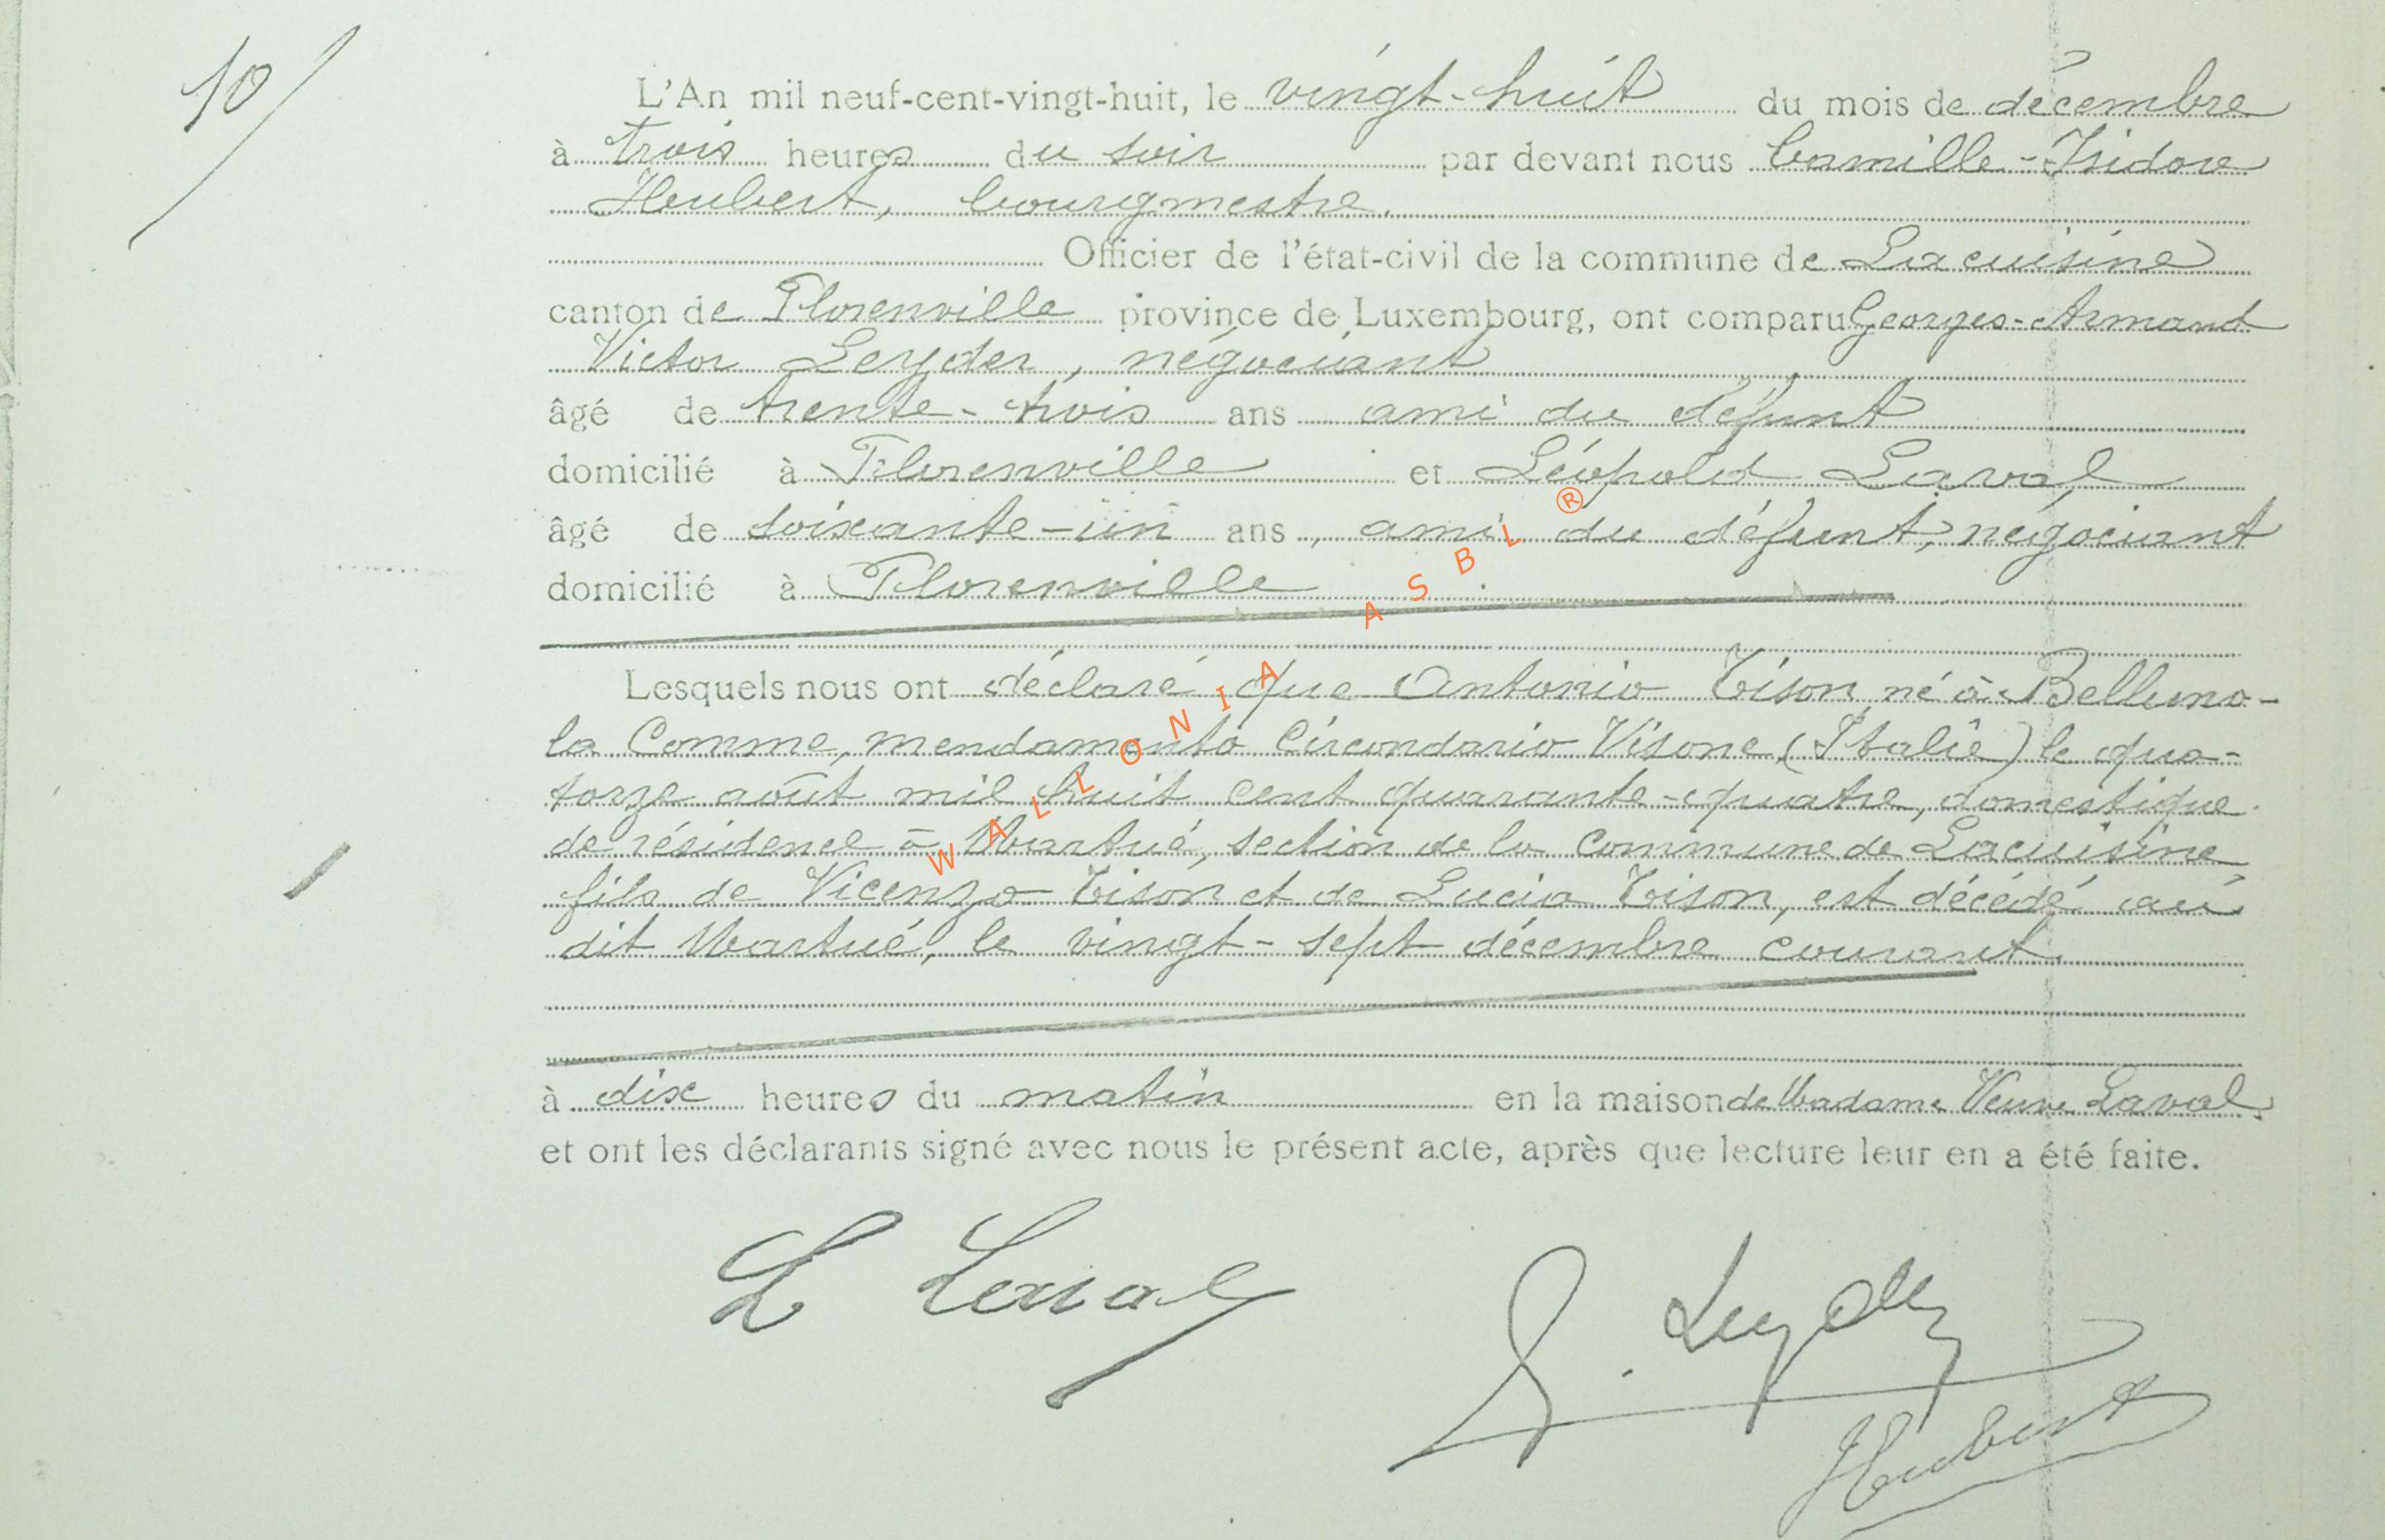 10/
L'An mil neuf-cent-vingt-huit, le vingt-huit du mois de décembre
à trois heures du soir par devant nous Camille-Isidore
Heubert, bourgmestre.
Officier de l'état-civil de la commune de Lacuisine
canton de Florenville province de Luxembourg, ont comparu Georges-Armand
Victor Leyder, négociant
âgé de trente-trois ans ami du défunt
domicilié à Florenville et Léopold Laval,
âgé de soixante-un ans, ami du défunt, négociant
domicilié à Florenville
Lesquels nous ont déclaré que Antonio Tison, né à Belluno-
la Comme, mendamento Circondario Visone (Italie) le qua-
torze août mil huit cent quarante-quatre, domestique
de résidence à Martué, section de la commune de Lacuisine,
fils de Vicenzo Tison et de Lucia Tison, est décédé au
dit Martué, le vingt-sept décembre courant.
à dix heures du matin en la maison de Madame Veuve Laval.
et ont les déclarants signé avec nous le présent acte, après que lecture leur en a été faite.
L Laval
G. Leyder
Heubert
WALLONIA ASBL ®